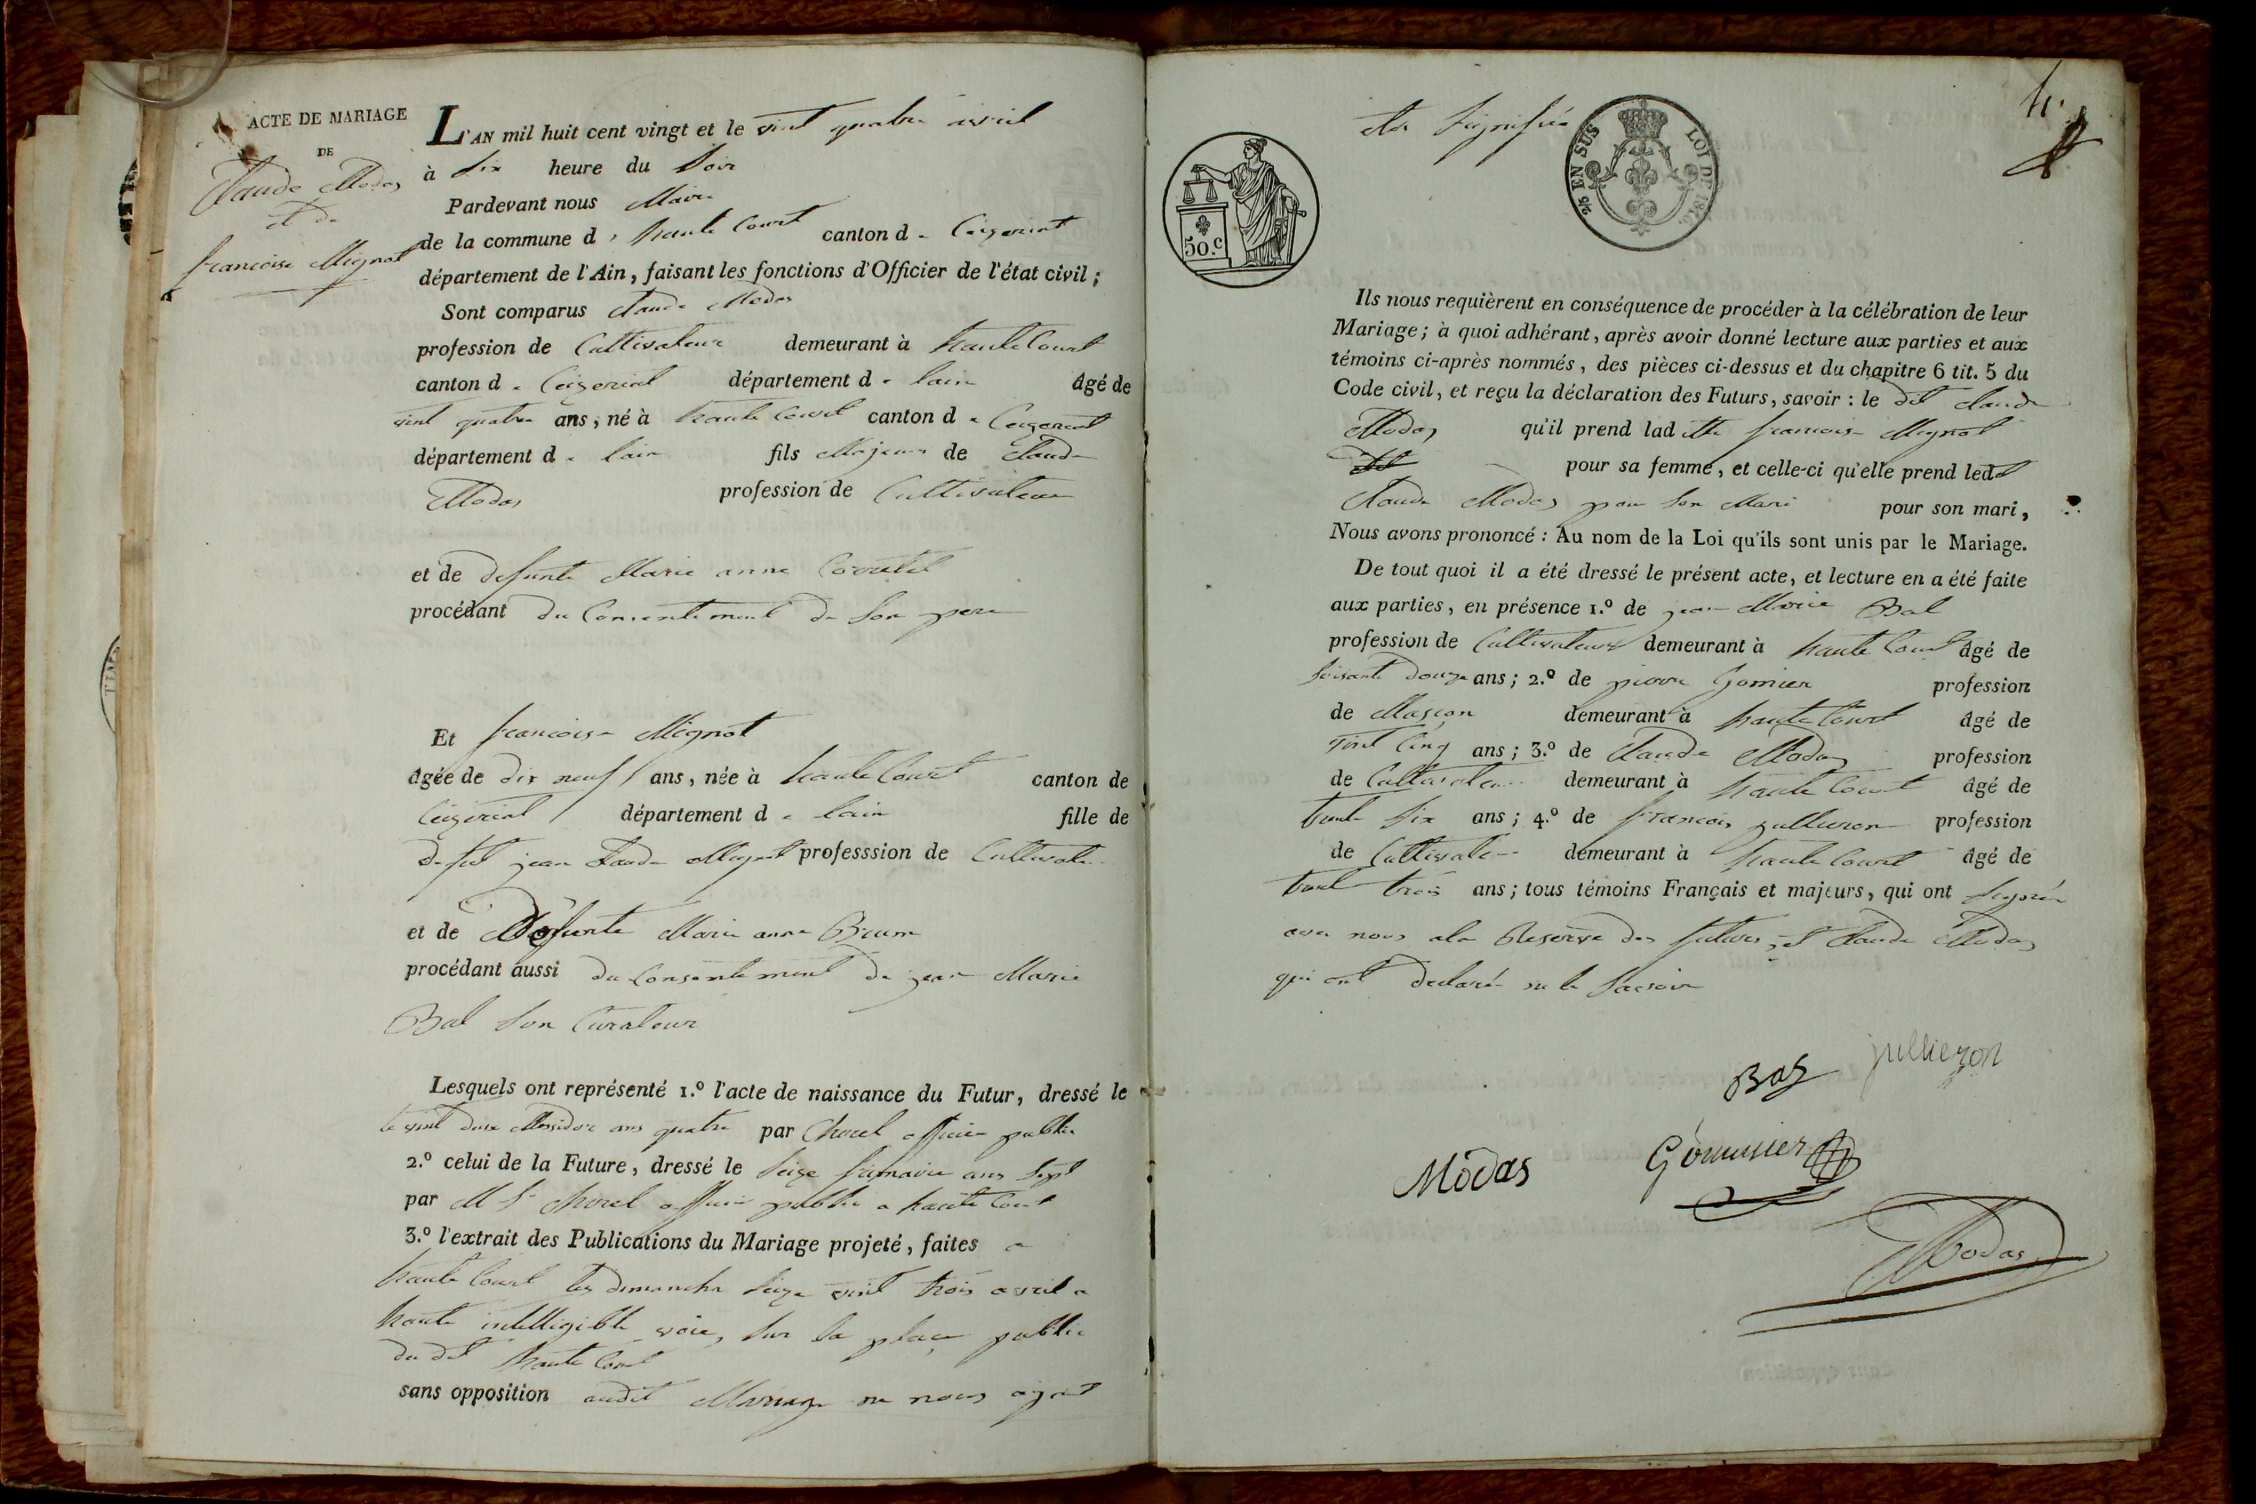 ACTE DE MARIAGE
DE
Claude Modas
et de
francoise Mignot
L'AN mil huit cent vingt et le vint quatre avril
à six heure du soir
Pardevant nous Maire
de la commune d haute Court canton d Ceizeriat
département de l'Ain, faisant les fonctions d'Officier de l'état civil;
Sont comparus Claude Modas
profession de Cultivateur demeurant à haute Court
canton d e Ceizeriat département d e lain âgé de
vint quatre ans, né à haute Court canton d e Ceizeriat
département d e lain fils Majeur de Claude
Modas profession de Cultivateur
et de defunte Marie anne
procédant du Consentement de son pere
Et francoise Mignot
âgée de dix neuf ans, née à haute Court canton de
Ceizeriat département d e lain fille de
defut jean Claude Mignot professsion de Cultivateur
et de Defunte Marie anne Brun
procédant aussi du Consentement de jean Marie
Bal son Curateur
Lesquels ont représenté 1.º l'acte de naissance du Futur, dressé le
le vint deux Messidor ans quatre par Chorel officier public
2.º celui de la Future, dressé le seize frimaire ans sept
par M S Chorel officier public a haute Court
3.º l'extrait des Publications du Mariage projeté, faites a
haute Court les dimanche seize vint trois avril a
haute intelligible voie, sur la place public
du dit haute Court
sans opposition audit Mariage ne nous ayant
été signifié
2/5 EN SUS LOI DE 1816.
50.c
4.
Ils nous requièrent en conséquence de procéder à la célébration de leur
Mariage; à quoi adhérant, après avoir donné lecture aux parties et aux
témoins ci-après nommés, des pièces ci-dessus et du chapitre 6 tit. 5 du
Code civil, et reçu la déclaration des Futurs, savoir: le dit Claude
Modas qu'il prend lad itte francoise Mignot
pour sa femme, et celle-ci qu'elle prend ledt
Claude Modas pour son Mari pour son mari,
Nous avons prononcé: Au nom de la Loi qu'ils sont unis par le Mariage.
De tout quoi il a été dressé le présent acte, et lecture en a été faite
aux parties, en présence 1.º de jean Marie Bal
profession de Cultivateur demeurant à haute Court âgé de
soisante douze ans; 2.º de pierre Gomier profession
de Masçon demeurant à haute Court âgé de
vint Cinq ans; 3.º de Claude Modas profession
de Cultivateur demeurant à haute Court âgé de
trente six ans; 4.º de francois jullieron profession
de Cultivateur demeurant à haute Court âgé de
trente trois ans; tous témoins Français et majeurs, qui ont signée
avec nous a la Reserve des futures et Claude Modas
qui ont declaré ne le savoir
Bal jullieron
Modas Gommier
Modas